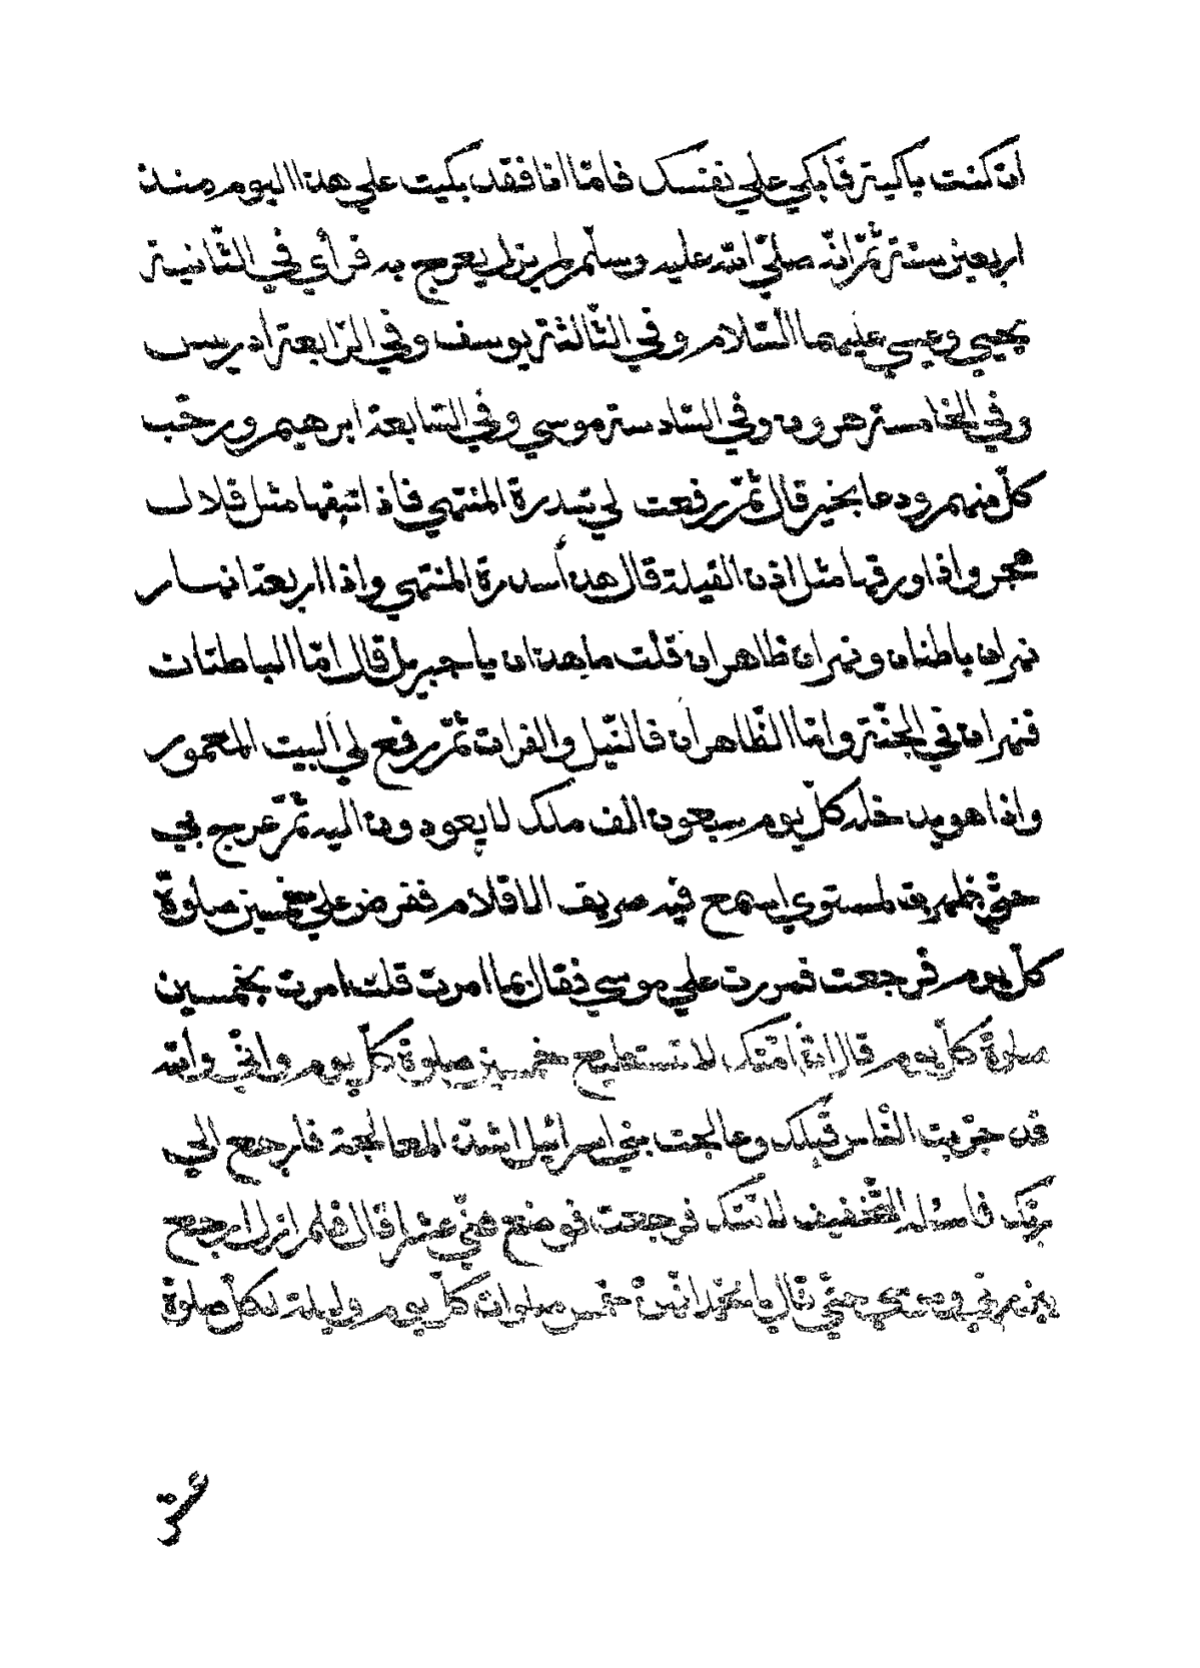 ان كنت باكية فابكي علي نفسك فامّا انا فقد بكيت علي هذا اليوم منذ
اربعين سنة ثمّ انّه صلّي اللّه عليه وسلّم لم يزل يعرج به فرأي في الثّانية
يحيي وعيسي عليهما السّلام وفي الثّالثة يوسف وفي الرّابعة ادريس
وفي الخامسة هرون وفي السّادسة موسي وفي السّابعة ابرهيم ورحّب
كلّ منهم ودعا بخير قال ثمّ رفعت لي سدرة المنتهي فاذا نبقها مثل قلال
هجر واذا ورقها مثل اذن الفيلة قال هذه سدرة المنتهي واذا اربعة انهار
نهران باطنان ونهران ظاهران قلت ما هذان يا جبريل قال امّا الباطنان
فنهران في الجنّة وامّا الظّاهران فالنّيل والفرات ثمّ رفع لي البيت المعمور
واذا هو يدخله كلّ يوم سبعون الف ملك لا يعودون اليه ثمّ عرج بي
حتّي ظهرت لمستوي اسمع فيه صريف الاقلام ففرض علي خمسين صلوة
كلّ يوم فرجعت فمررت علي موسي فقال بما امرت قلت امرت بخمسين
صلوة كلّ يوم قال انّ امّتك لا تستطيع خمسين صلوة كلّ يوم وانّي واللّه
قد جرّبت النّاس قبلك وعالجت بني اسرائيل اشدّ المعالجة فارجع الي
ربّك فاسئله التّخفيف لامّتك فرجعت فوضع عنّي عشرا قال فلم ازل ارجع
بين ربّي وموسي حتّي قال يا محمّد انّهنّ خمس صلوات كلّ يوم وليلة لكلّ صلوة